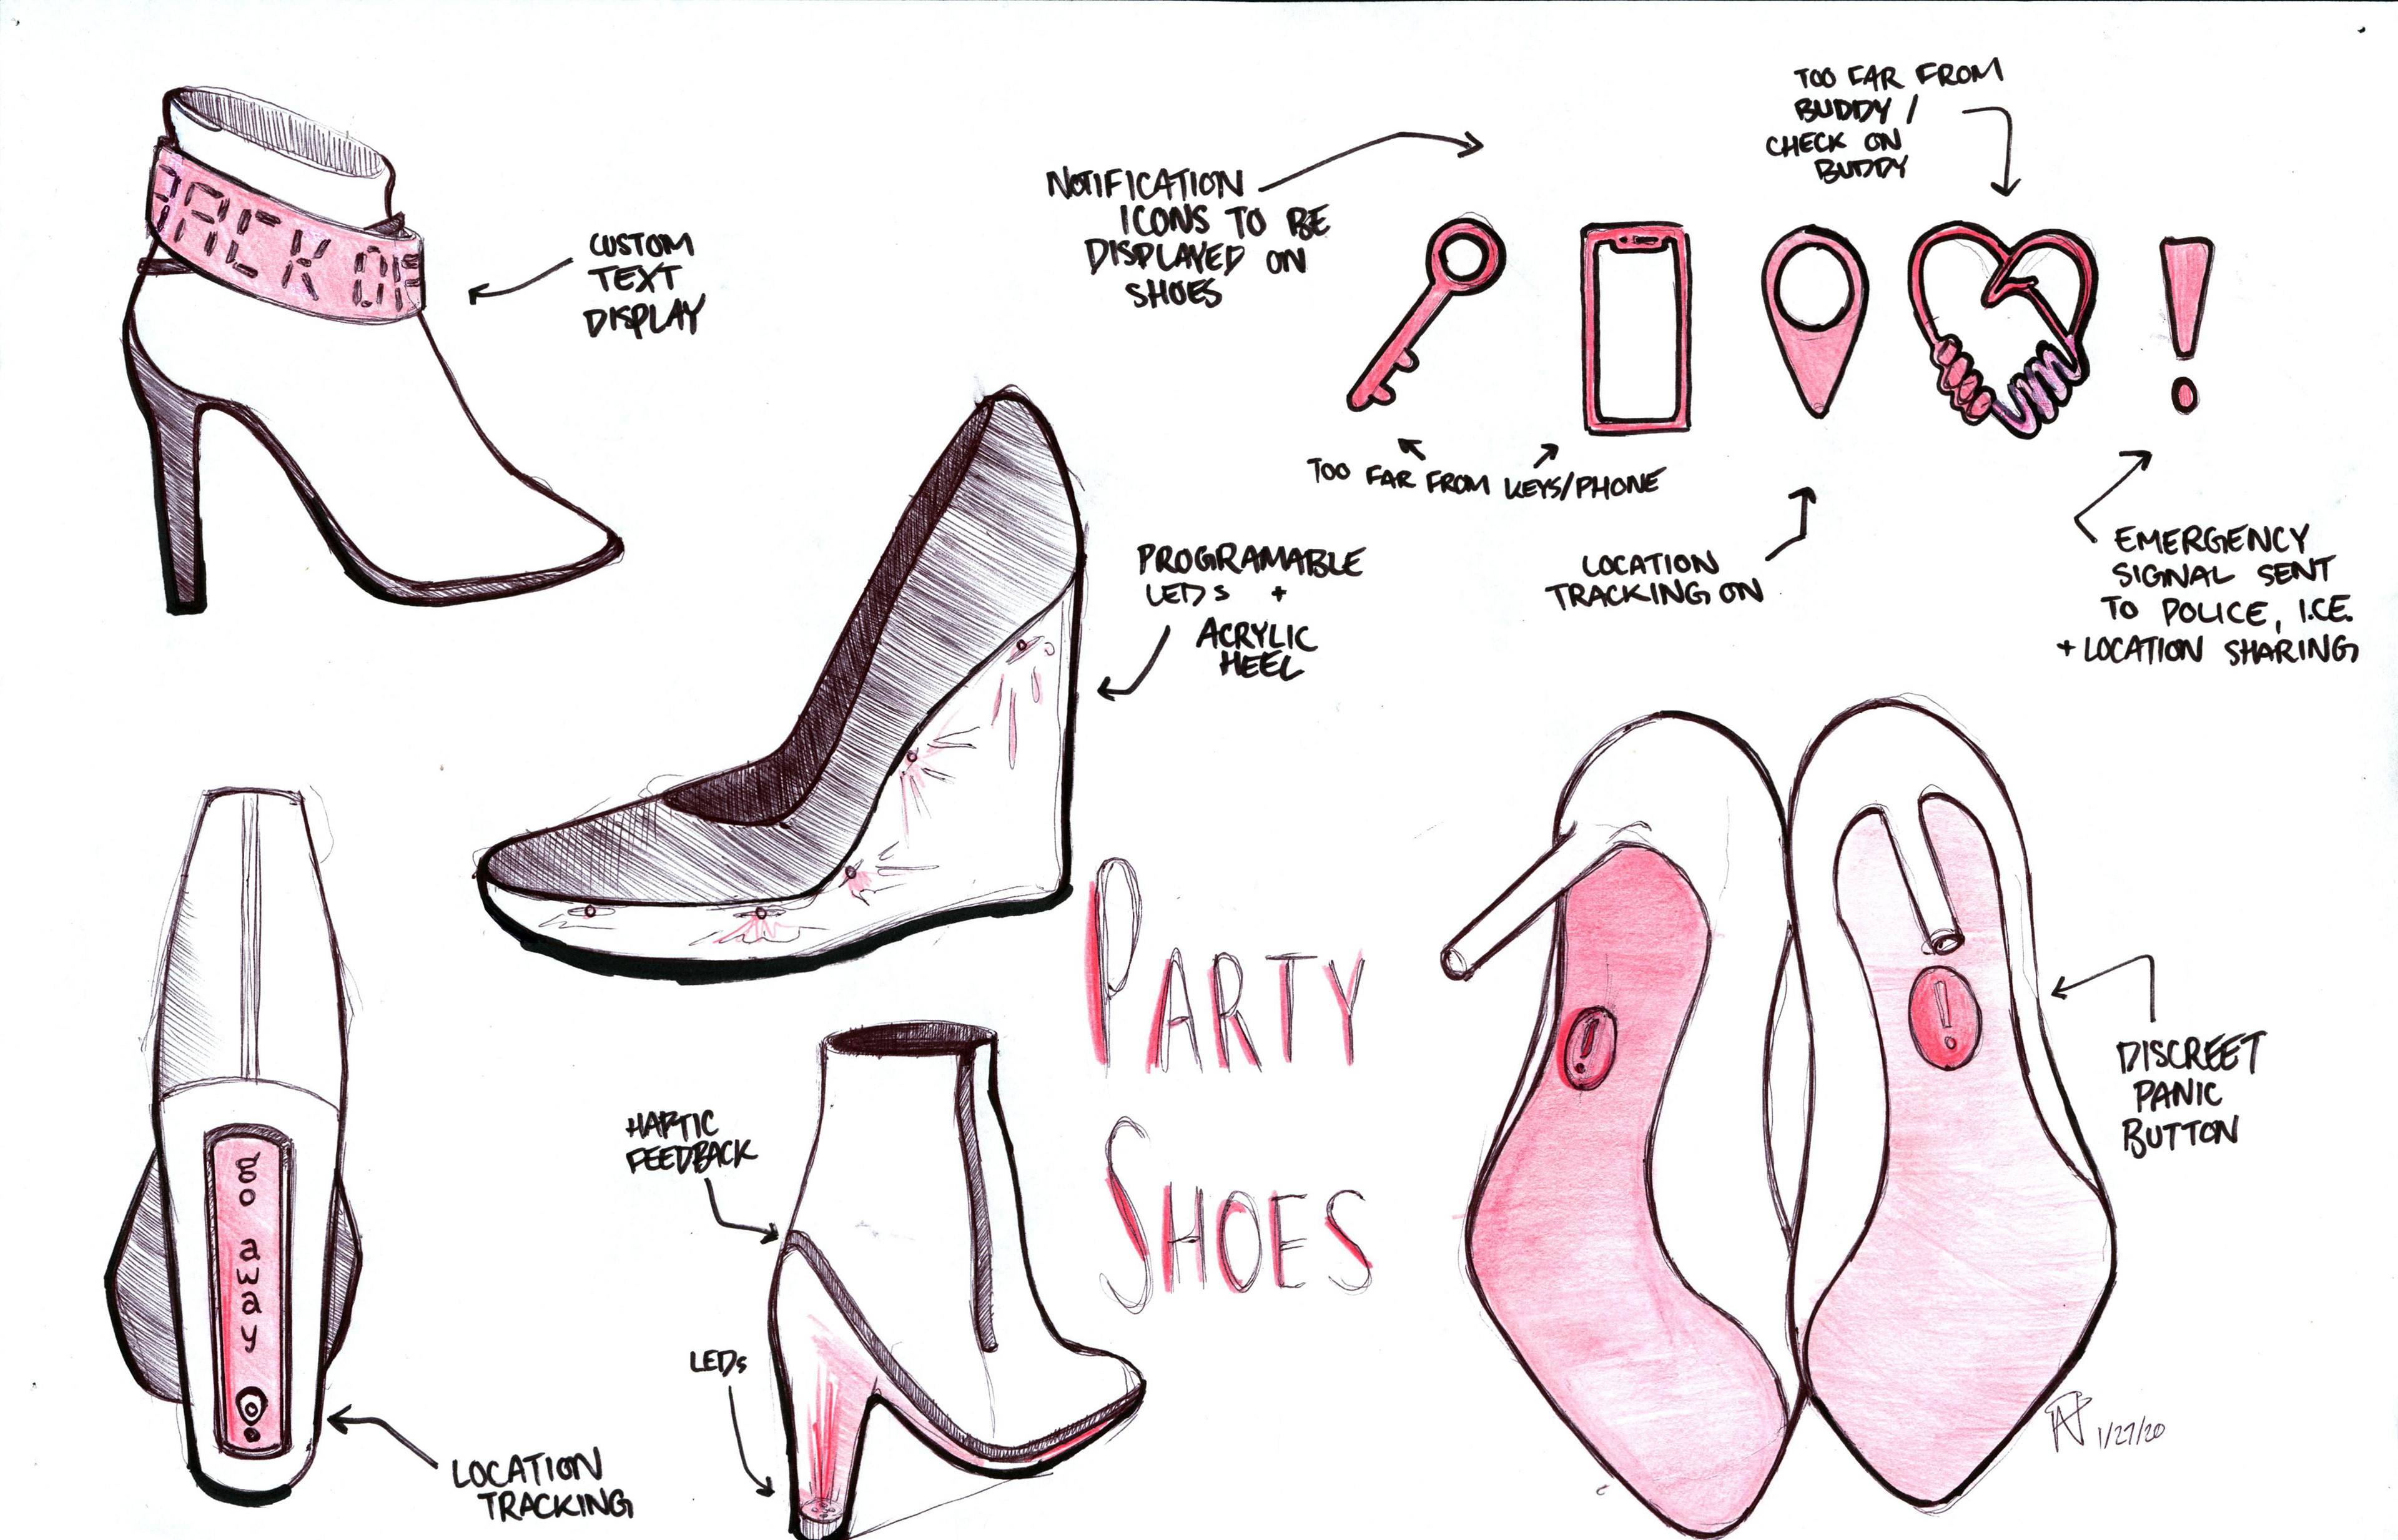 BACK OF
CUSTOM
TEXT
DISPLAY
NOTIFICATION
ICONS TO BE
DISPLAYED ON
SHOES
TOO FAR FROM
BUDDY /
CHECK ON
BUDDY
TOO FAR FROM KEYS/PHONE
LOCATION
TRACKING ON
!
EMERGENCY
SIGNAL SENT
TO POLICE, I.C.E.
+ LOCATION SHARING
PROGRAMABLE
LEDs +
ACRYLIC
HEEL
PARTY
SHOES
go away
LOCATION
TRACKING
HAPTIC
FEEDBACK
LEDs
!
!
DISCREET
PANIC
BUTTON
1/27/20